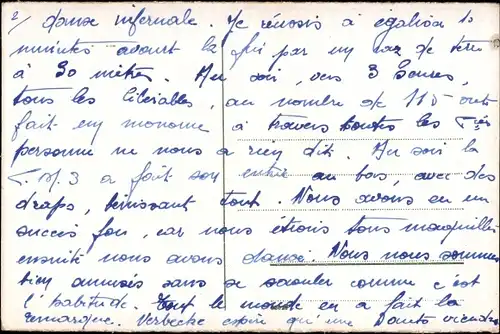 2/ danse infernale. Je réussis à égaliser 10
minutes avant la fin par un raz de terre
à 30 mètres. Au soir, vers 3 heures,
tous les libérables, au nombre de 115 ont
fait en monome à travers toutes les
personne ne nous a rien dit. Au soir la
a fait son entrée au bas, avec des
draps, tout. Nous avons eu un
succès fou, car nous étions tous maquillés
ensuite nous avons dansé. Nous nous sommes
bien amusés sans se saouler comme c'est
l'habitude. Tout le monde en a fait la
remarque. Verbecke espère qu'une